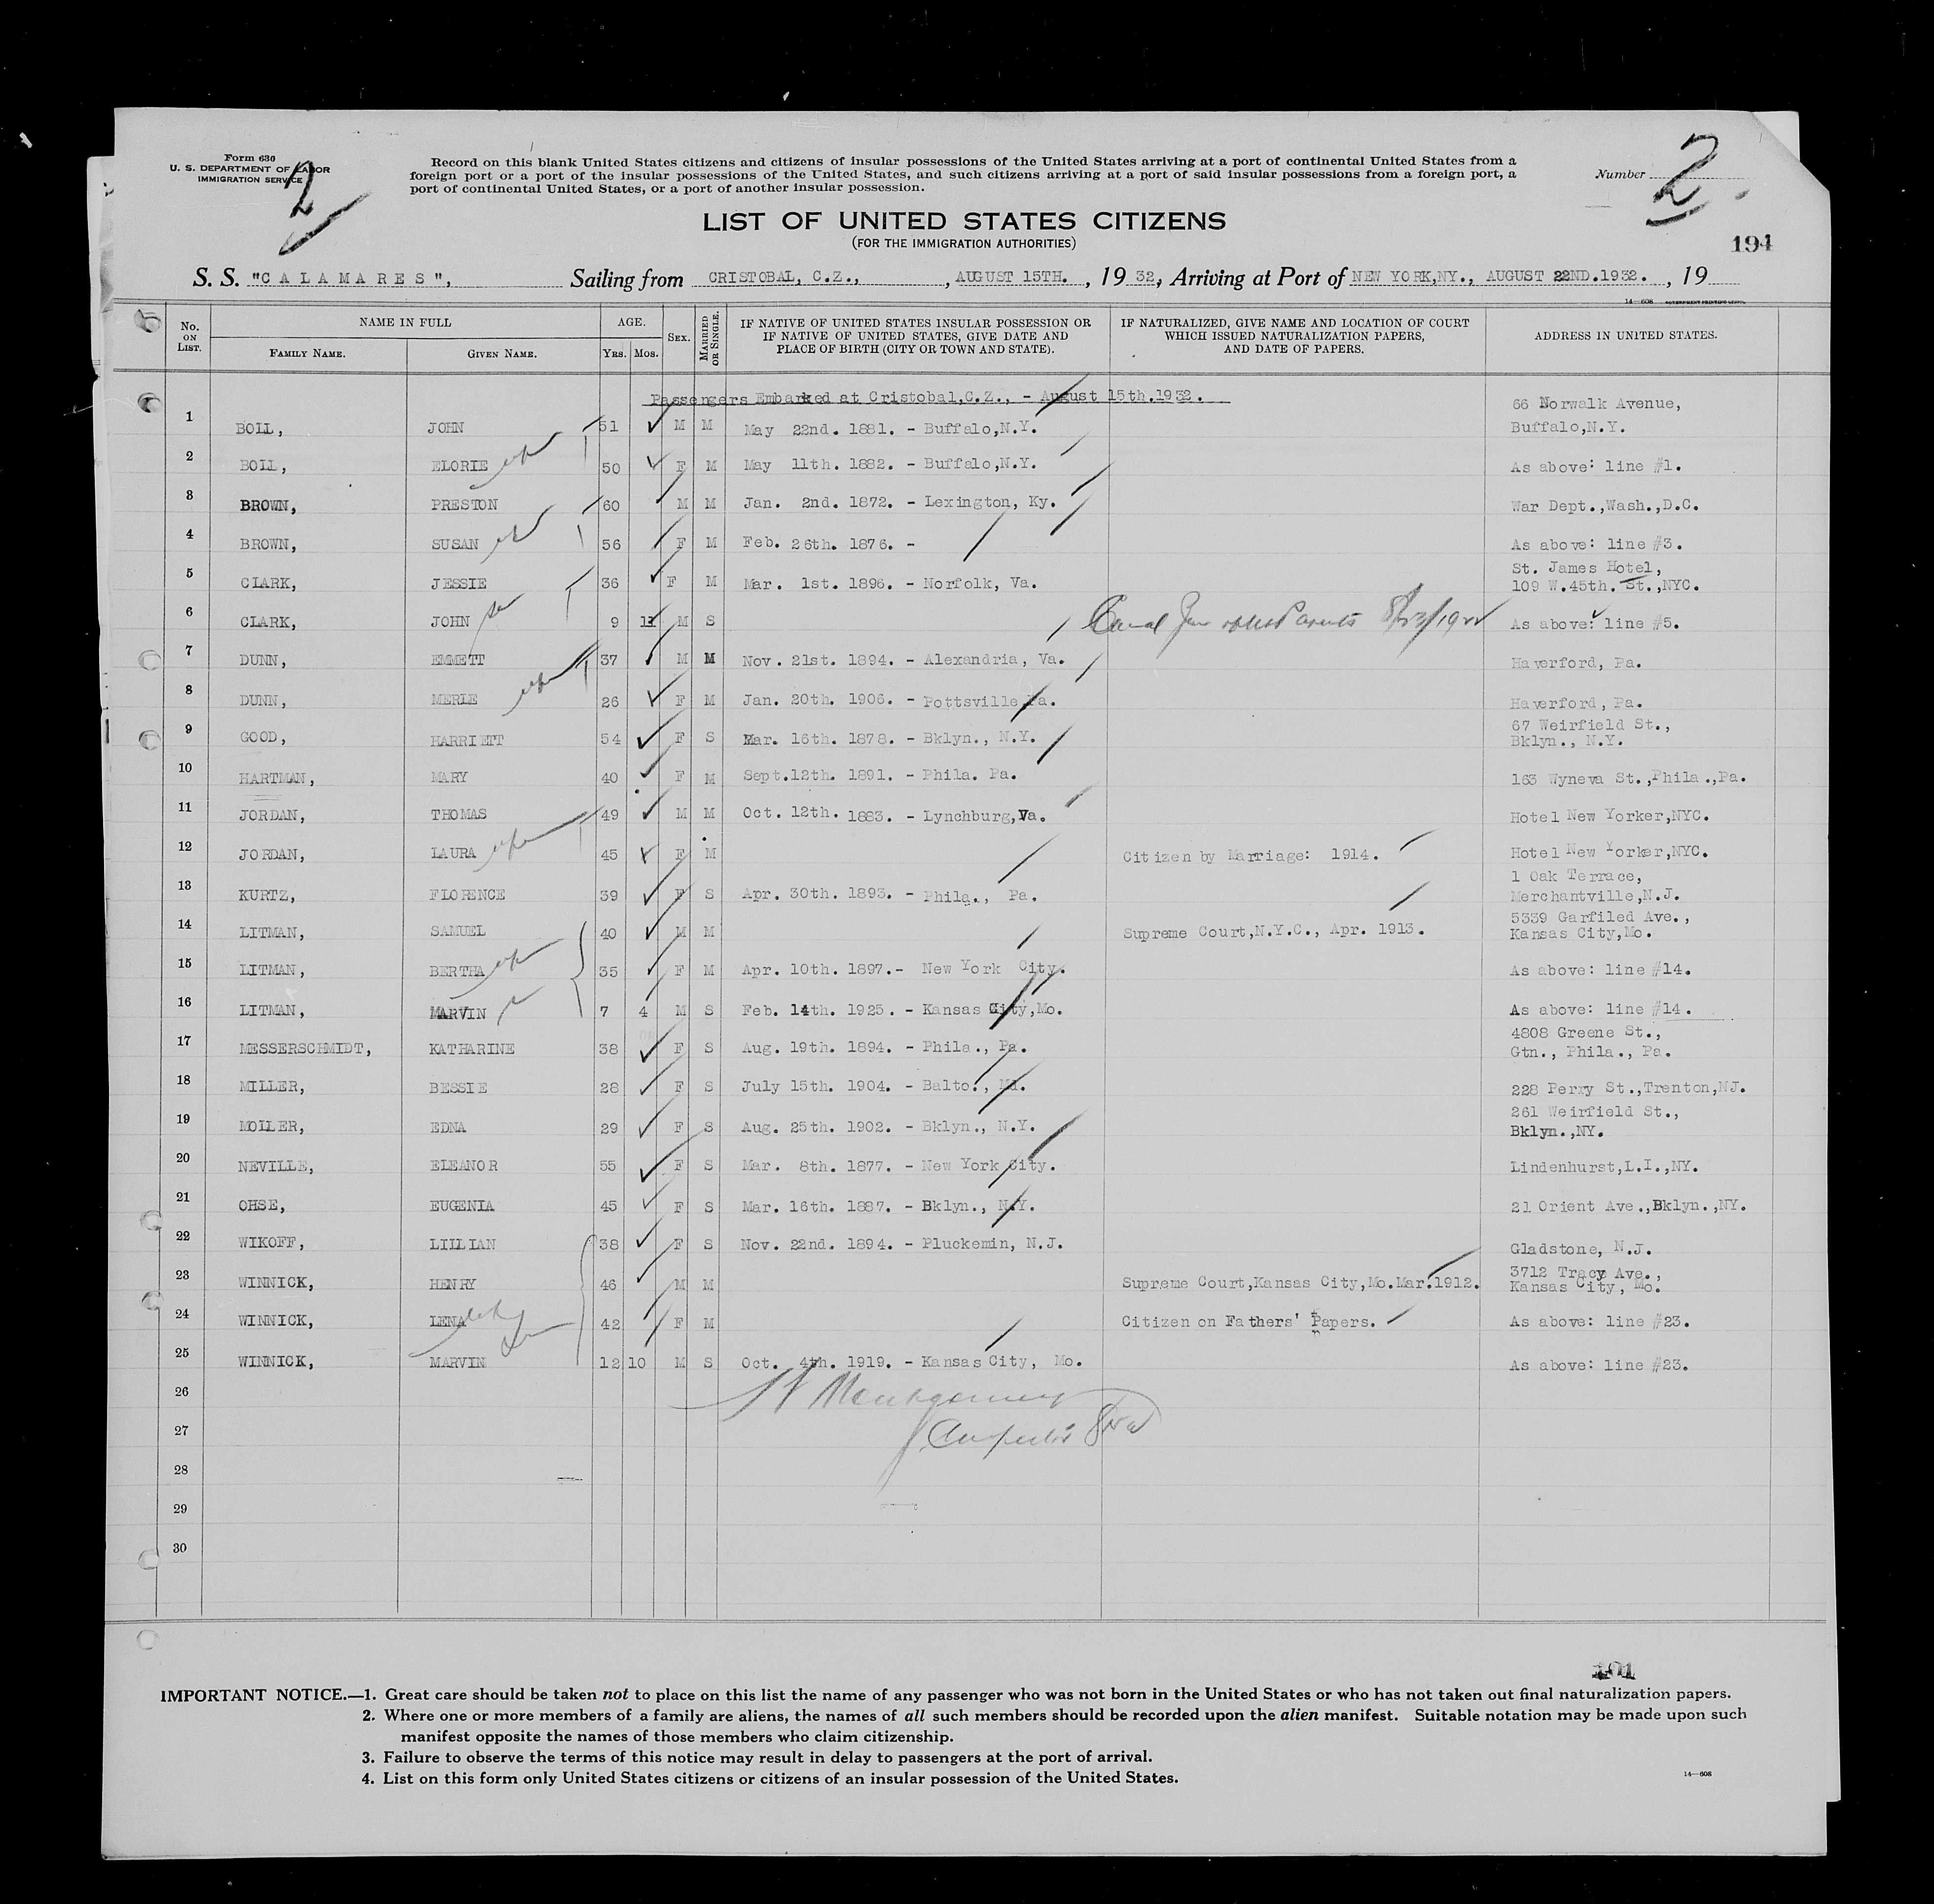 Form 630
U. S. DEPARTMENT OF LABOR
IMMIGRATION SERVICE
2
Record on this blank United States citizens and citizens of insular possessions of the United States arriving at a port of continental United States from a
foreign port or a port of the insular possessions of the United States, and such citizens arriving at a port of said insular possessions from a foreign port, a
port of continental United States, or a port of another insular possession.
Number 2
LIST OF UNITED STATES CITIZENS
(FOR THE IMMIGRATION AUTHORITIES)
194
S. S. "CALAMARES", Sailing from CRISTOBAL, C.Z., , AUGUST 15TH. , 1932, Arriving at Port of NEW YORK,NY., AUGUST 22ND.1932. , 19
14—608 GOVERNMENT PRINTING OFFICE
No. ON LIST. NAME IN FULL FAMILY NAME. GIVEN NAME. AGE. YRS. MOS. SEX. MARRIED OR SINGLE. IF NATIVE OF UNITED STATES INSULAR POSSESSION OR IF NATIVE OF UNITED STATES, GIVE DATE AND PLACE OF BIRTH (CITY OR TOWN AND STATE). IF NATURALIZED, GIVE NAME AND LOCATION OF COURT WHICH ISSUED NATURALIZATION PAPERS, AND DATE OF PAPERS. ADDRESS IN UNITED STATES.
Passengers Embarked at Cristobal,C.Z., - August 15th.1932.
1 BOLL, JOHN 51 M M May 22nd. 1881. - Buffalo,N.Y. 66 Norwalk Avenue, Buffalo,N.Y.
2 BOLL, ELORIE 50 F M May 11th. 1882. - Buffalo,N.Y. As above: line #1.
3 BROWN, PRESTON 60 M M Jan. 2nd. 1872. - Lexington, Ky. War Dept.,Wash.,D.C.
4 BROWN, SUSAN 56 F M Feb. 26th. 1876. - As above: line #3.
5 CLARK, JESSIE 36 F M Mar. 1st. 1896. - Norfolk, Va. St. James Hotel, 109 W.45th. St.,NYC.
6 CLARK, JOHN 9 11 M S Canal Zone Parents As above: line #5.
7 DUNN, EMMETT 37 M M Nov. 21st. 1894. - Alexandria, Va. Haverford, Pa.
8 DUNN, MERLE 26 F M Jan. 20th. 1906. - Pottsville,Pa. Haverford, Pa.
9 GOOD, HARRIETT 54 F S Mar. 16th. 1878. - Bklyn., N.Y. 67 Weirfield St., Bklyn., N.Y.
10 HARTMAN, MARY 40 F M Sept.12th. 1891. - Phila. Pa. 163 Wyneva St.,Phila.,Pa.
11 JORDAN, THOMAS 49 M M Oct. 12th. 1883. - Lynchburg,Va. Hotel New Yorker,NYC.
12 JORDAN, LAURA 45 F M Citizen by Marriage: 1914. Hotel New Yorker,NYC.
13 KURTZ, FLORENCE 39 F S Apr. 30th. 1893. - Phila., Pa. 1 Oak Terrace, Merchantville,N.J.
14 LITMAN, SAMUEL 40 M M Supreme Court,N.Y.C., Apr. 1913. 5339 Garfiled Ave., Kansas City,Mo.
15 LITMAN, BERTHA 35 F M Apr. 10th. 1897.- New York City. As above: line #14.
16 LITMAN, MARVIN 7 4 M S Feb. 14th. 1925. - Kansas City,Mo. As above: line #14.
17 MESSERSCHMIDT, KATHARINE 38 F S Aug. 19th. 1894. - Phila., Pa. 4808 Greene St., Gtn., Phila., Pa.
18 MILLER, BESSIE 28 F S July 15th. 1904. - Balto., Md. 228 Perry St.,Trenton,NJ.
19 MOLLER, EDNA 29 F S Aug. 25th. 1902. - Bklyn., N.Y. 261 Weirfield St., Bklyn.,NY.
20 NEVILLE, ELEANOR 55 F S Mar. 8th. 1877. - New York City. Lindenhurst,L.I.,NY.
21 OHSE, EUGENIA 45 F S Mar. 16th. 1887. - Bklyn., N.Y. 21 Orient Ave.,Bklyn.,NY.
22 WIKOFF, LILLIAN 38 F S Nov. 22nd. 1894. - Pluckemin, N.J. Gladstone, N.J.
23 WINNICK, HENRY 46 M M Supreme Court,Kansas City,Mo.Mar.1912. 3712 Tracy Ave., Kansas City, Mo.
24 WINNICK, LENA 42 F M Citizen on Fathers' Papers. As above: line #23.
25 WINNICK, MARVIN 12 10 M S Oct. 4th. 1919. - Kansas City, Mo. As above: line #23.
26 Montgomery
27
28
29
30
IMPORTANT NOTICE.—1. Great care should be taken not to place on this list the name of any passenger who was not born in the United States or who has not taken out final naturalization papers.
2. Where one or more members of a family are aliens, the names of all such members should be recorded upon the alien manifest. Suitable notation may be made upon such
manifest opposite the names of those members who claim citizenship.
3. Failure to observe the terms of this notice may result in delay to passengers at the port of arrival.
4. List on this form only United States citizens or citizens of an insular possession of the United States.
14—608